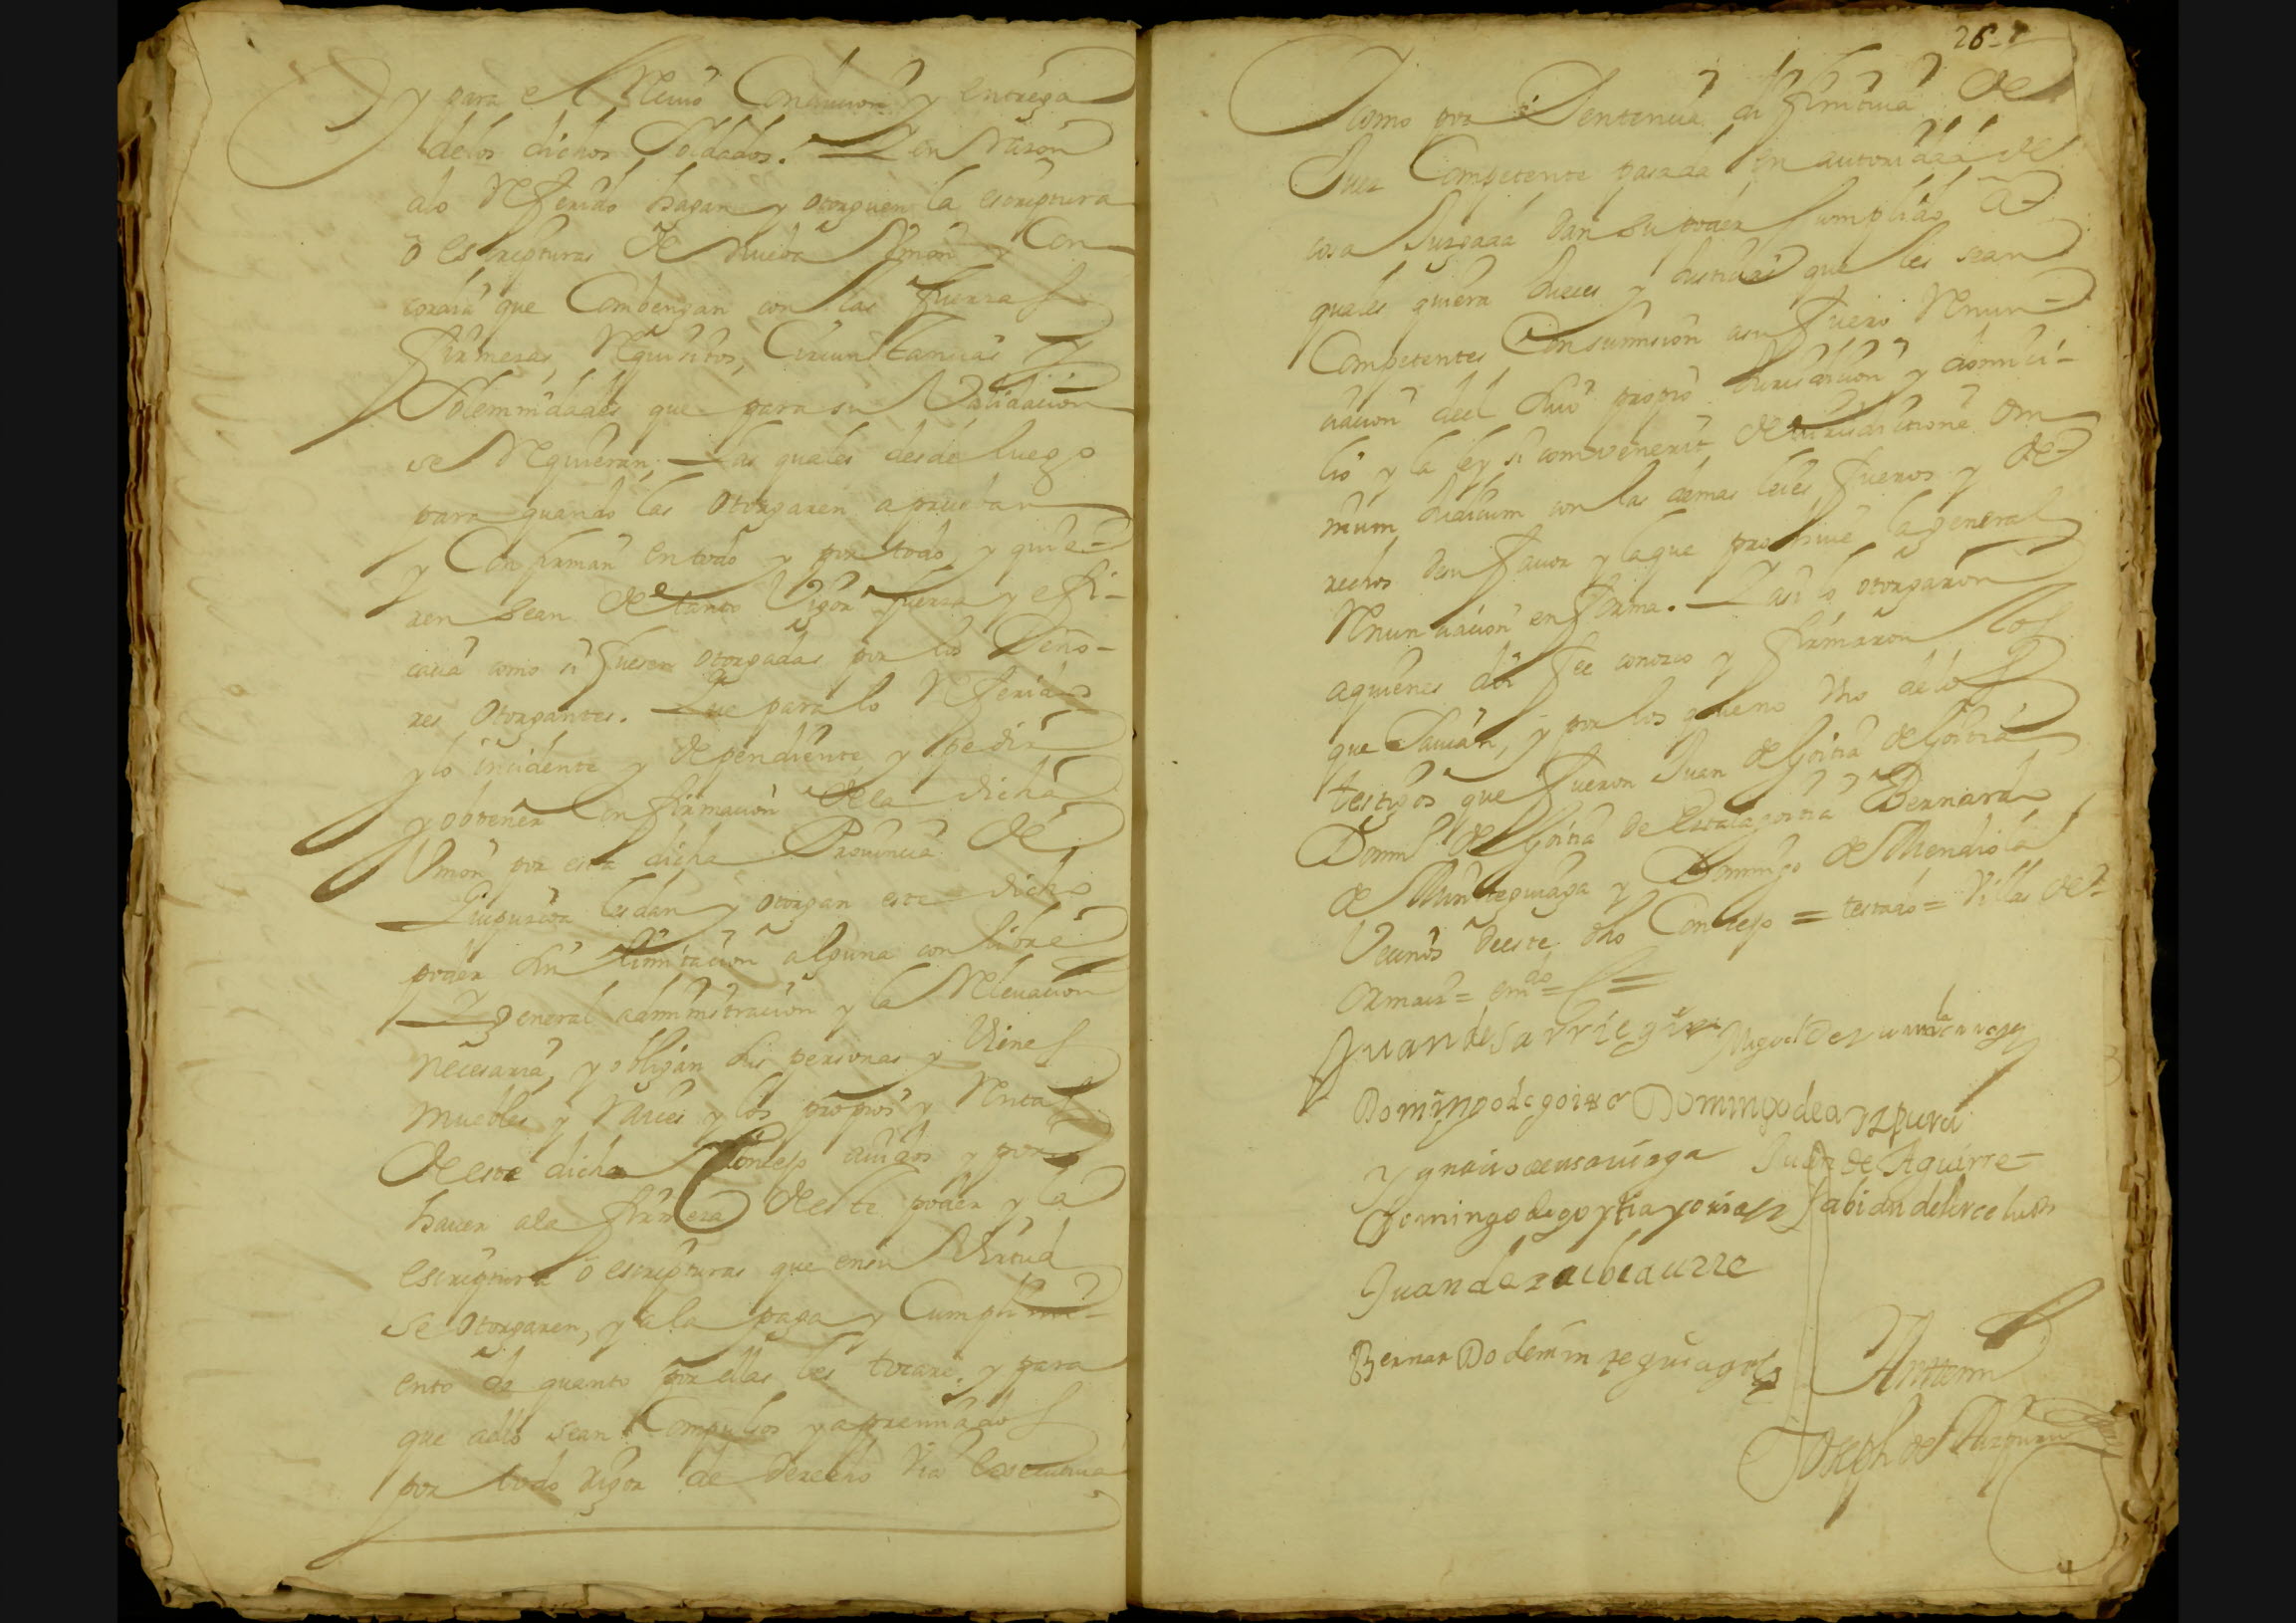 y para el Reciuo Conduccion y entrega
delos dichos Soldados. Y en Razon
alo Referido hagan y otorguen la escriptura
o escripturas de nueba Union y Con
cordia que Combengan con las fuerzas
firmezas, Requisitos, Circunstancias y
Solemnidades que para su Validacion
se Requieran; las quales desde luego
para quando las otorgaren aprueban
y Confirman en todo y por todo y quie-
ren sean de tanto Vigor fuerza y efi-
cacia como si fuesen otorgadas por los Seño-
res otorgantes. Que para lo Referido
y lo incidente y dependiente y pedir
y obtener Confirmacion dela dicha
Union por esta dicha Prouincia de
Guipuzcoa les dan y otorgan este dicho
poder sin limitacion alguna con libre
y general administracion y la Releuacion
necesaria, y obligan sus personas y Vienes
muebles y Raices y los propios y Rentas
de este dicho Concejo auidos y por
hauer ala firmeza de este poder y la
escriptura o escripturas que en su Virtud
se otorgaren, y ala paga y Cumplimi-
ento de quanto por ellas les tocare. y para
que aello sean Compulsos y apremiados
por todo rigor de derecho Via executiua
26
Como por Sentencia difinitiua de
Juez Competente pasada en autoridad de
cosa Juzgada dan su poder Cumplido a
quales quiera Jueces y Justicias que les sean
Competentes Con sumision a su fuero Renun-
ciacion del suio propio Jurisdiccion y domici-
lio y la ley si combenerit de Jurisdictione om
nium Judicum con las demas leies fueros y de-
rechos de su fauor y la que prohiue la general
Renunciacion en forma. Y asi lo otorgaron
aquienes doi fee conozco y firmaron los
que Sauian, y por los que no Vno de los
testigos que fueron Juan de Goitia de Goitia
Domin.º de Goitia de Goitia Bernardo
de Minteguiaga y Domingo de Mendiola
Vecinos de este dho Concejo = testado = Villas de
Ormaiz = em.do =
Juan de Sarriegui Miguel de
Domingo de goitia Domingo de aizpuru
Ygnacio de usauiaga Juan de Aguirre
Domingo de goytia y Fabian de
Juan de zaibiaurre
Bernardo de minteguiaga
Antemi
Joseph de Aizpuru